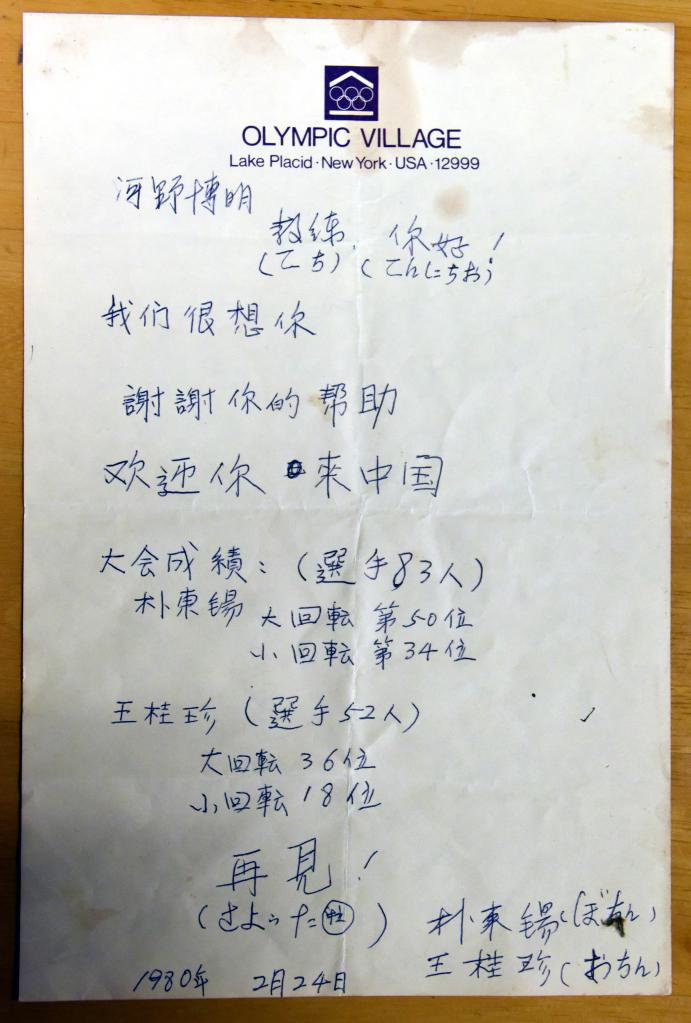 OLYMPIC VILLAGE
Lake Placid·New York·USA·12999
河野博明
教练 你好!
(こち) (こんにちお)
我们很想你
謝謝你的帮助
欢迎你 来中国
大会成績:(選手83人)
朴東锡 大回転 第50位
小回転 第34位
王桂珍(選手52人)
大回転 36位
小回転 18位
再見!
(さよ
朴東锡(ぼちん)
王桂珍(おちん)
1980年 2月24日